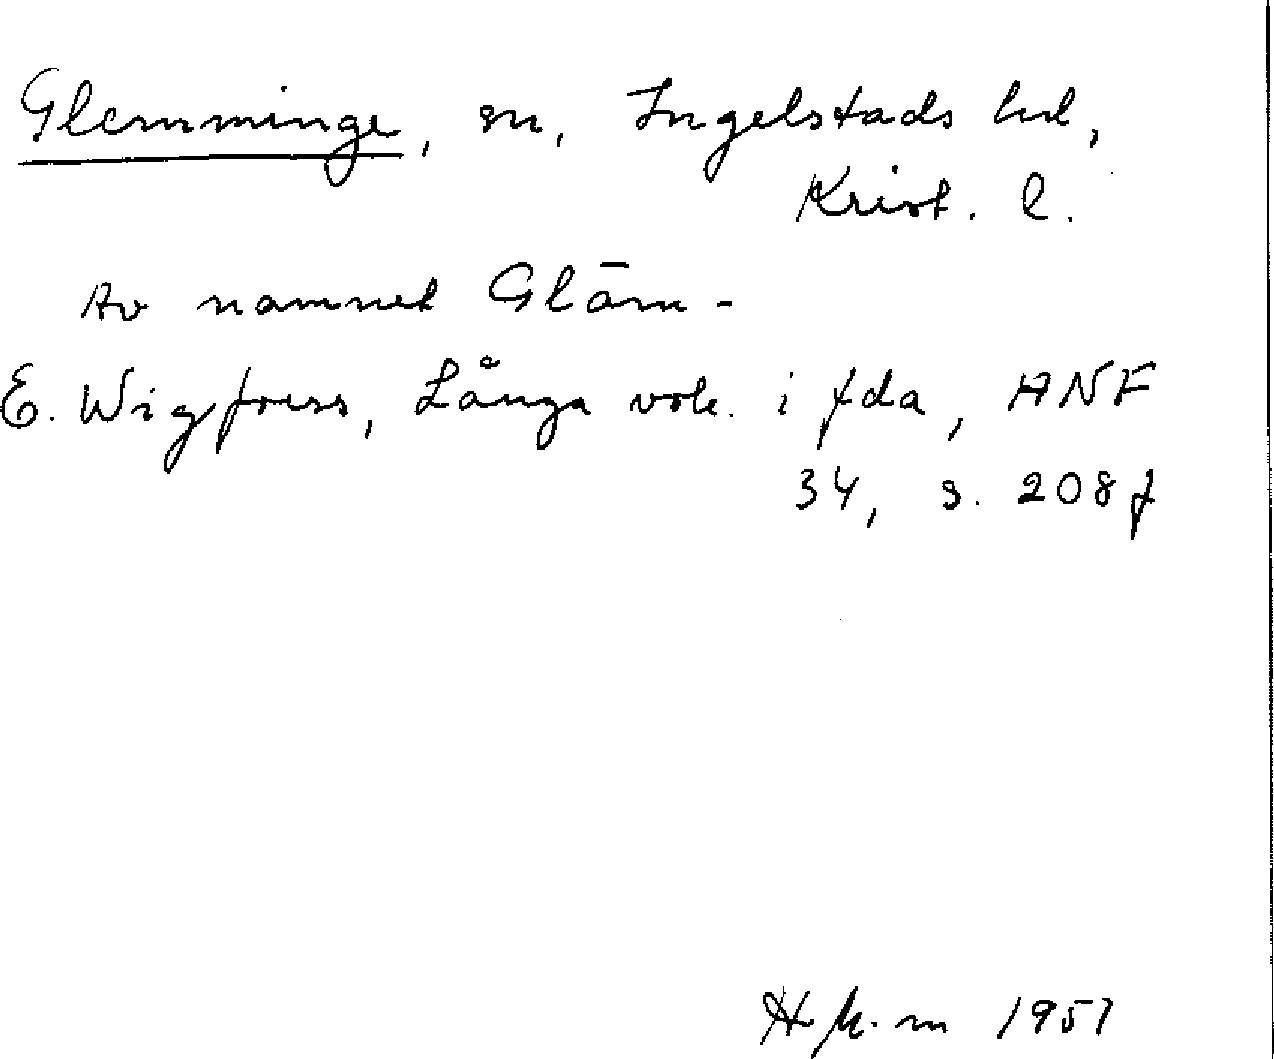 Glemminge, sn, Ingelstads hd,
Krist. l.
Av namnet Glām-
E. Wigforss, Långa vok. i fda, ANF
34, s. 208 f
1951